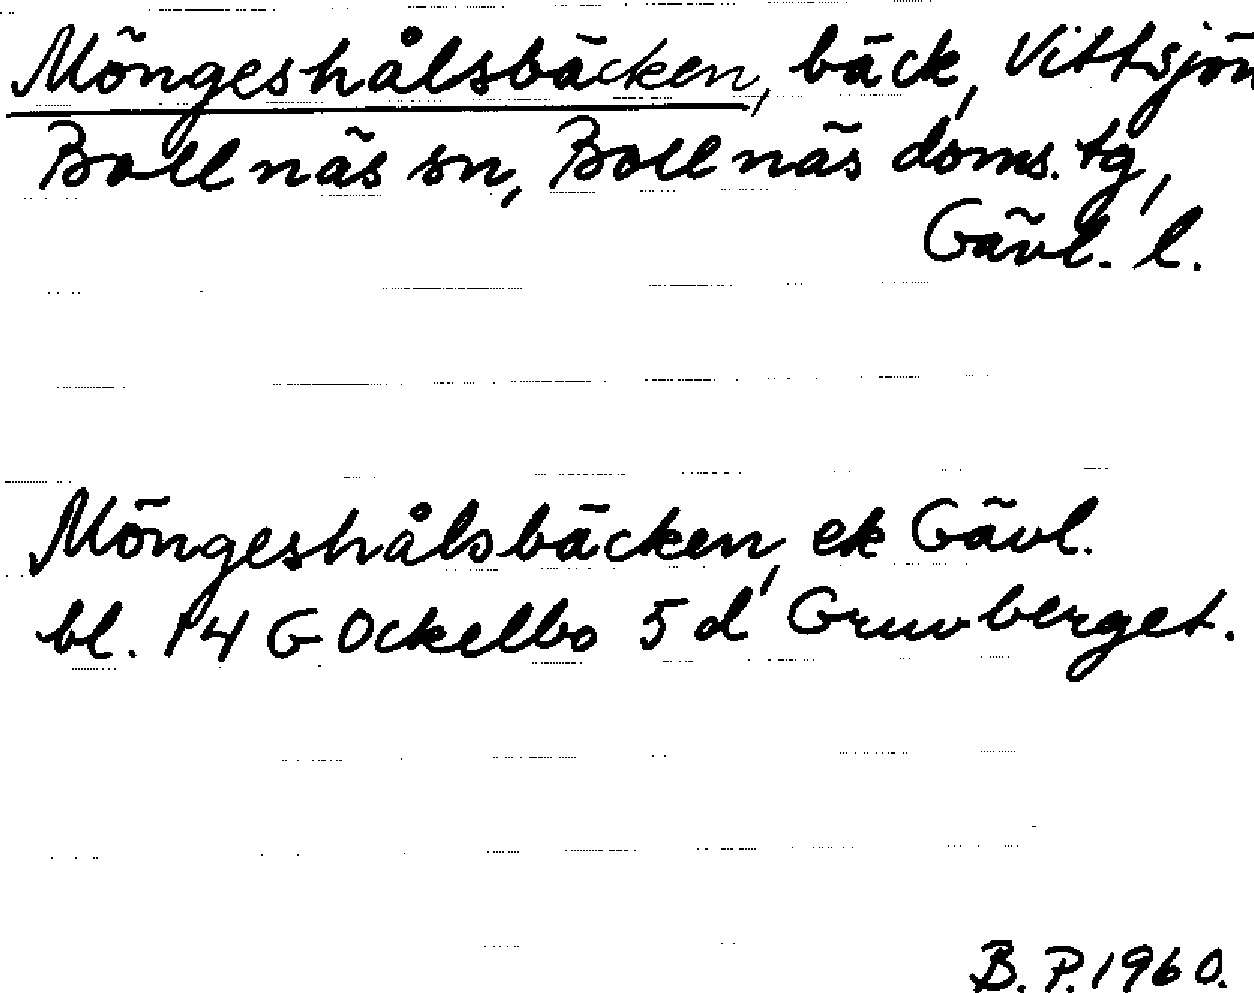 Möngeshålsbäcken, bäck, Vittsjön
Bollnäs sn, Bollnäs doms. tg,
Gävl. l.
Möngeshålsbäcken, ek Gävl.
bl. 14 G Ockelbo 5 d Gruvberget.
B. P. 1960.